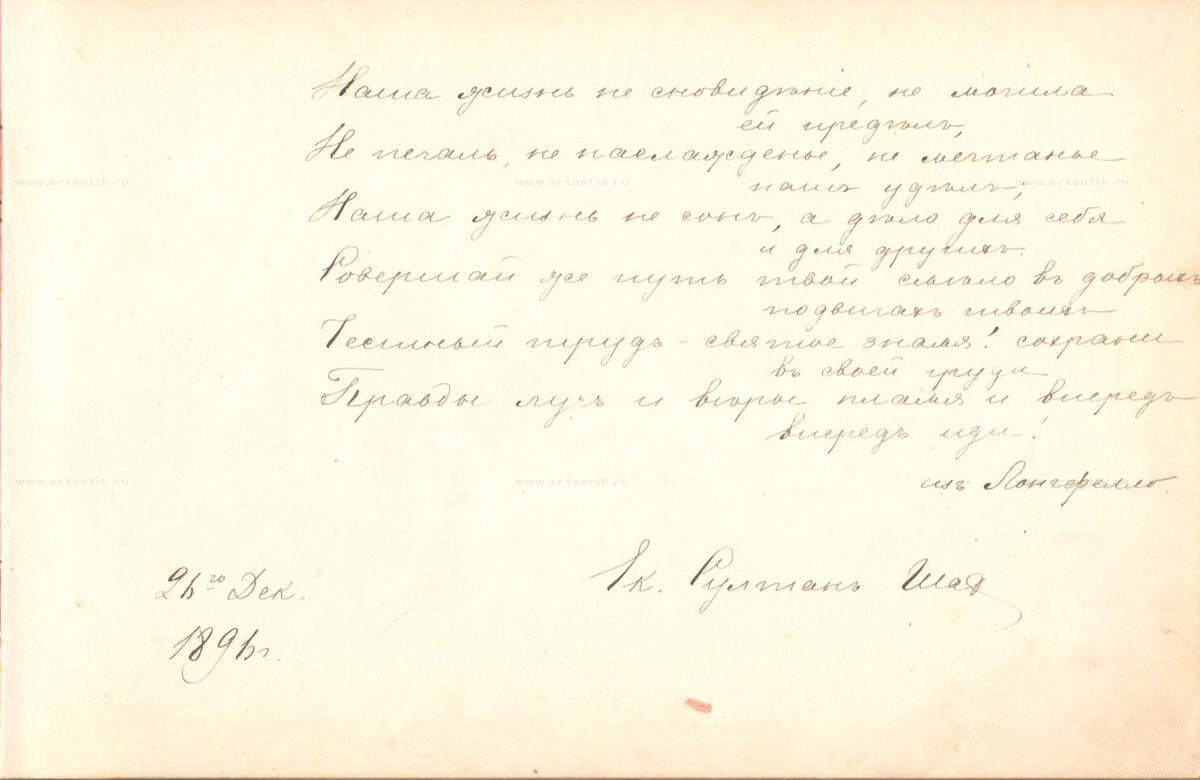 Наша жизнь не сновидѣніе, не могила
ей предѣлъ,
Не печаль, не наслажденье, не мечтанье
нашъ удѣлъ;
Наша жизнь не сонъ, а дѣло для себя
и для другихъ.
Совершай же путь твой смѣло въ добрыхъ
подвигахъ твоихъ
Честный трудъ - святое знамя! сохрани
въ своей груди
Правды лучъ и вѣры пламя и впередъ
впередъ иди!
изъ Лонгфелло.
Ек. Султанъ Шах
26го Дек.
1896г.
www.artantik.ru www.artantik.ru www.artantik.ru
www.artantik.ru www.artantik.ru